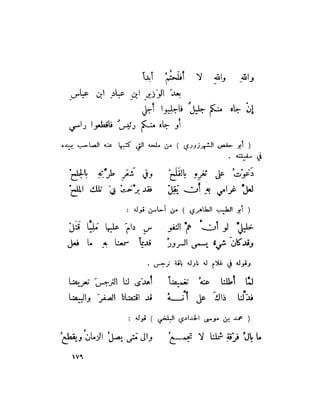 واللهِ واللهِ لا أفلَحتُمُ أبداً
بعدَ الوزيرِ ابنِ عبادِ ابن عباسِ
إنْ جاء منكم جليلٌ فاجلِبوا أجلي
أو جاء منكم رئيسٌ فاقطعوا راسي
( أبو حفص الشهرزوري ) من ملحه التي كتبها عنه الصاحب بيده
في سفينته .
دَعَوْتُ على ثغرِهِ بالقَلَحْ وفي شَعْرِ طرَّتِهِ بالجلحْ
لعلَّ غرامي بهِ أن يَقِلْ فقد برَّحتْ بيَ تلك الملحْ
( أبو الطيب الطاهري ) من أحاسن قوله :
خليليَّ لو أنَّ همَّ النفو سِ دامَ عليها مَلِيّاً قَتَلْ
وقد كانَ شيءٌ يسمى السرورُ قديماً سمعنا به ما فعل
وقوله في غلام له ناوله باقة نرجس .
لمَّا أطلنا عنهُ تغميضا أهدَى لنا النرجسَ تعريضا
فدَلَّنا ذاكَ على أنَّـــهُ قد اقتضانا الصفرَ والبيضا
( محمد بن موسى الحدادي البلخي ) قوله :
ما بالُ فرقةِ شملنا لا تجمـــعُ والى متى يصلُ الزمانُ ويقطعُ
١٧٩